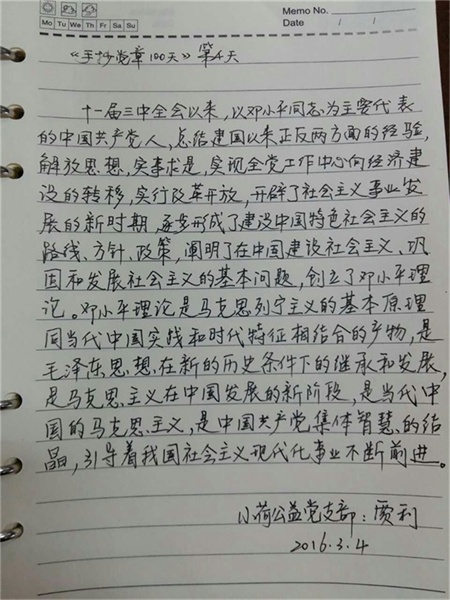 Memo No.
Mo Tu We Th Fr Sa Su
Date / /
《手抄党章100天》第4天
十一届三中全会以来,以邓小平同志为主要代表
的中国共产党人,总结建国以来正反两方面的经验,
解放思想,实事求是,实现全党工作中心向经济建
设的转移,实行改革开放,开辟了社会主义事业发
展的新时期,逐步形成了建设中国特色社会主义的
路线、方针、政策,阐明了在中国建设社会主义、巩
固和发展社会主义的基本问题,创立了邓小平理
论。邓小平理论是马克思列宁主义的基本原理
同当代中国实践和时代特征相结合的产物,是
毛泽东思想在新的历史条件下的继承和发展,
是马克思主义在中国发展的新阶段,是当代中
国的马克思主义,是中国共产党集体智慧的结
晶,引导着我国社会主义现代化事业不断前进。
小荷公益党支部:贾利
2016.3.4